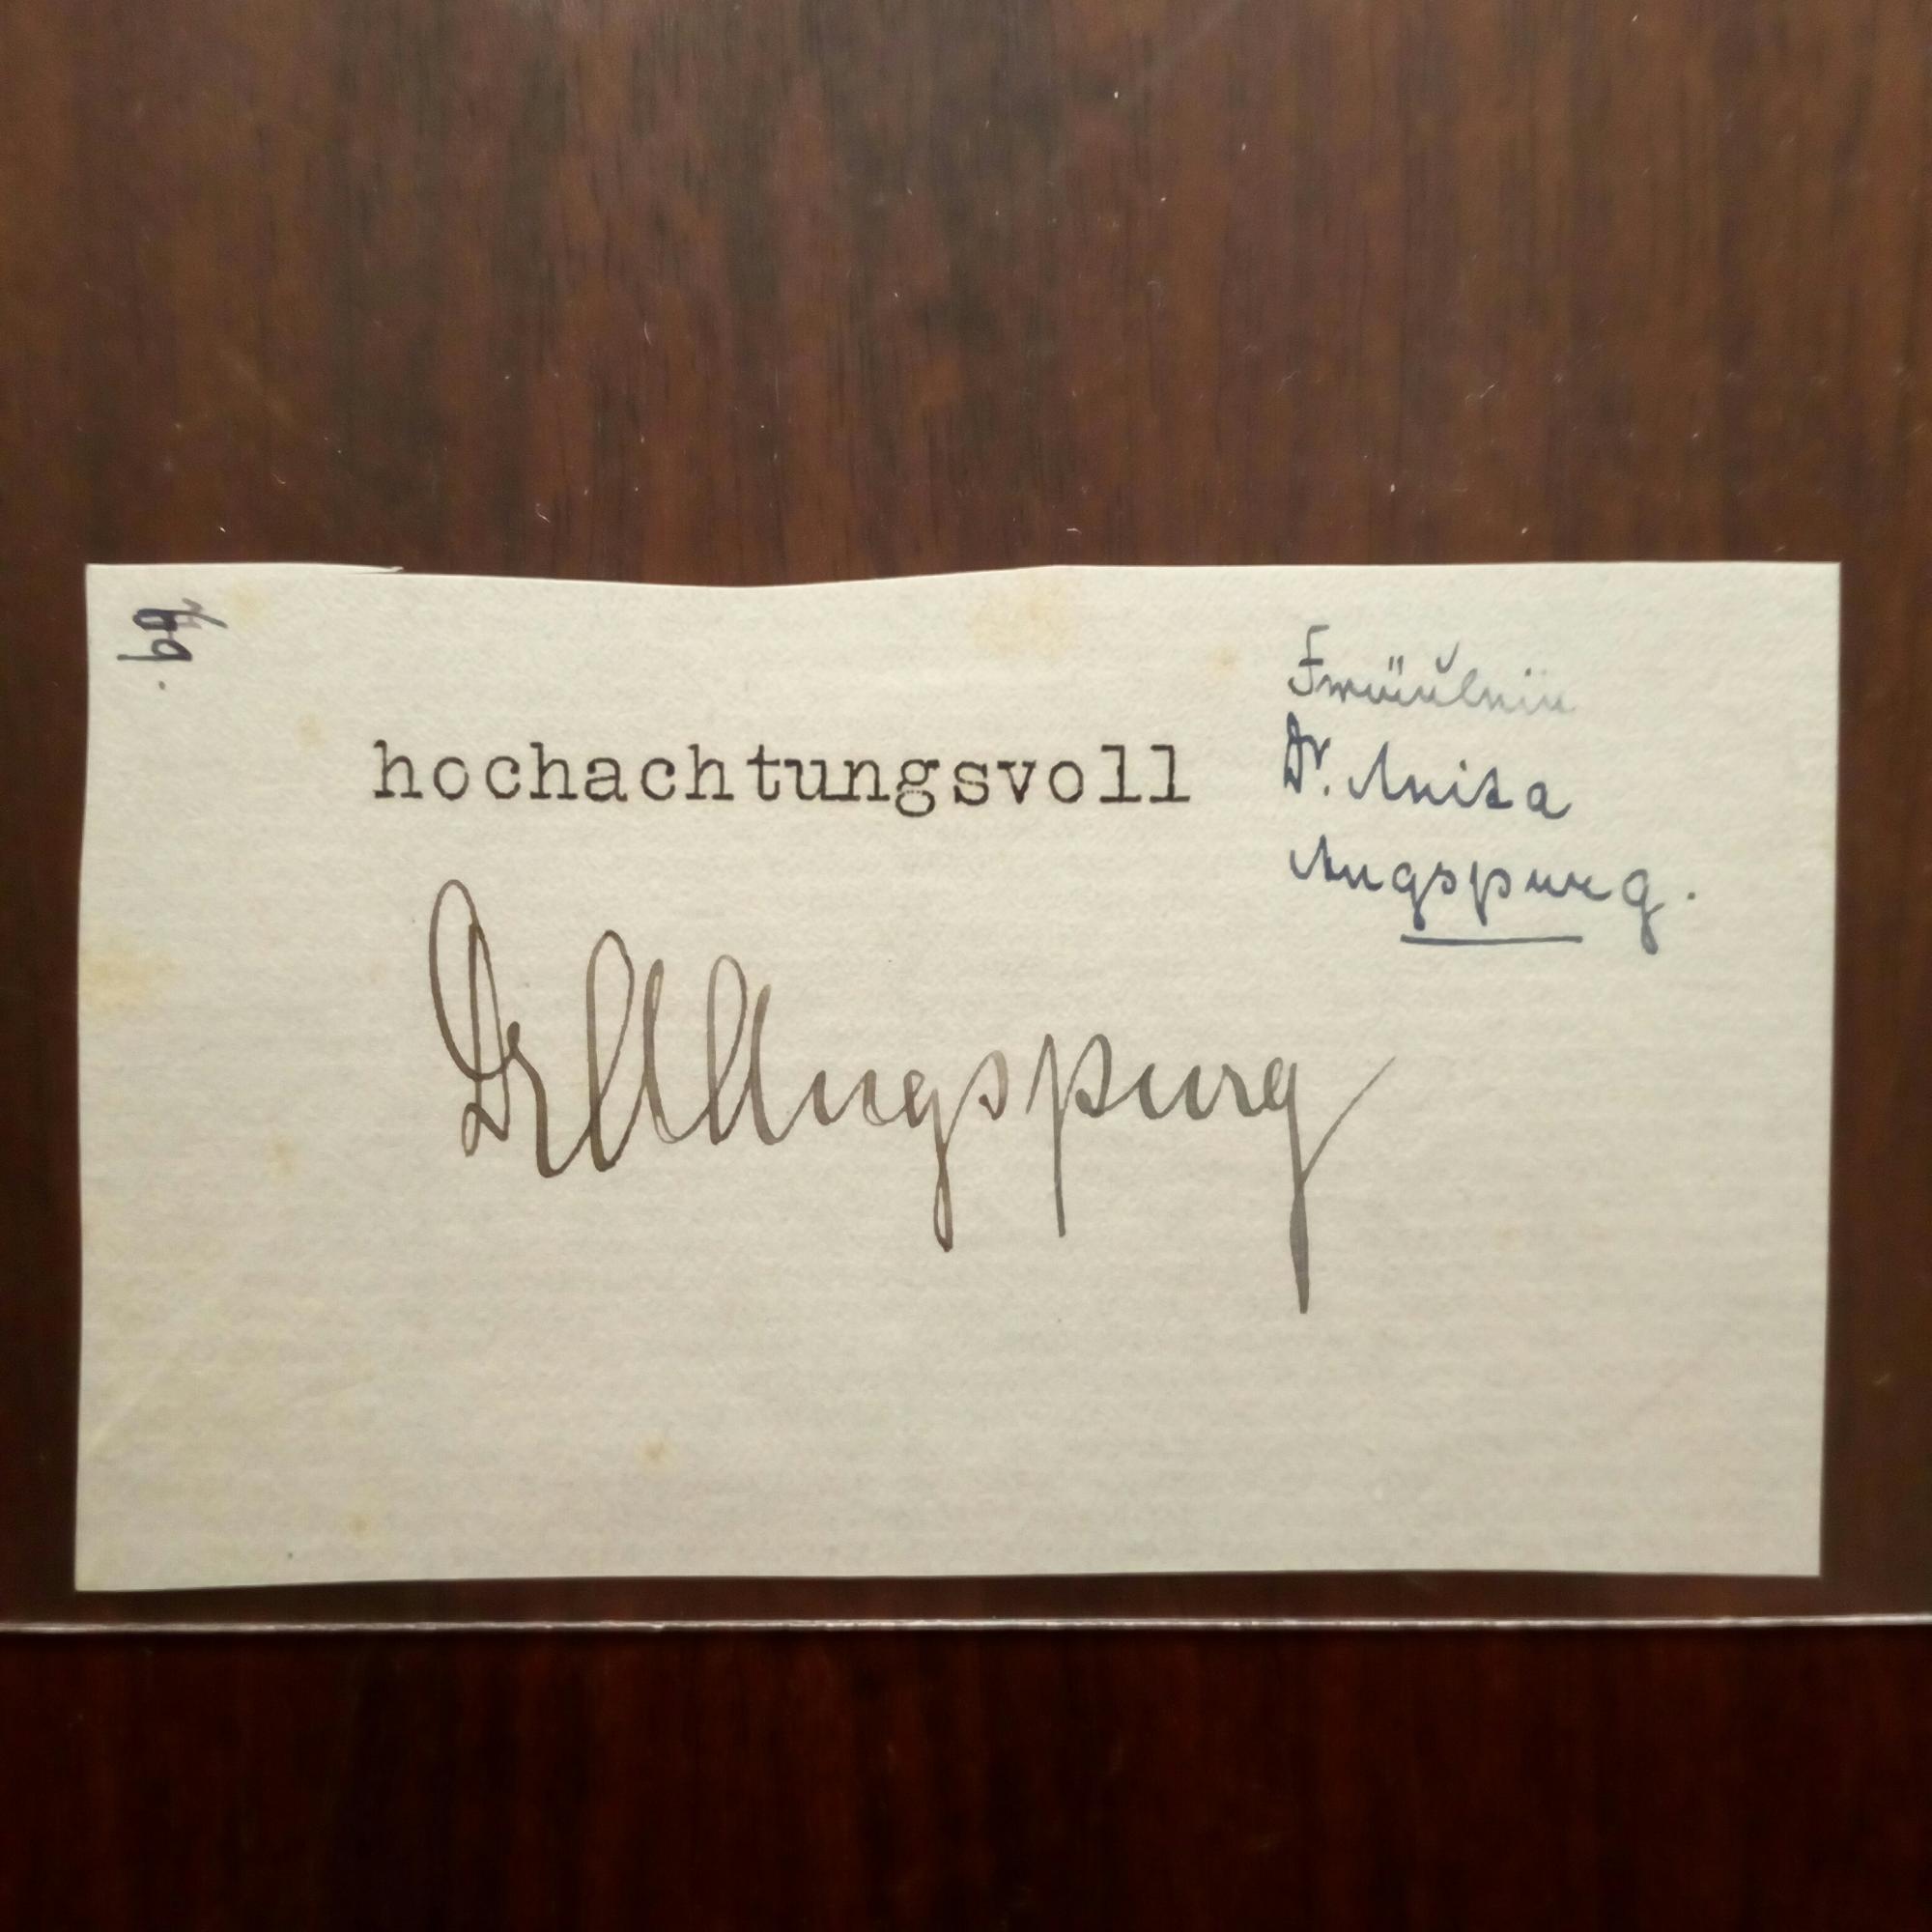 hochachtungsvoll
Dr A Augspurg
Fräulein
Dr. Anita
Augspurg.